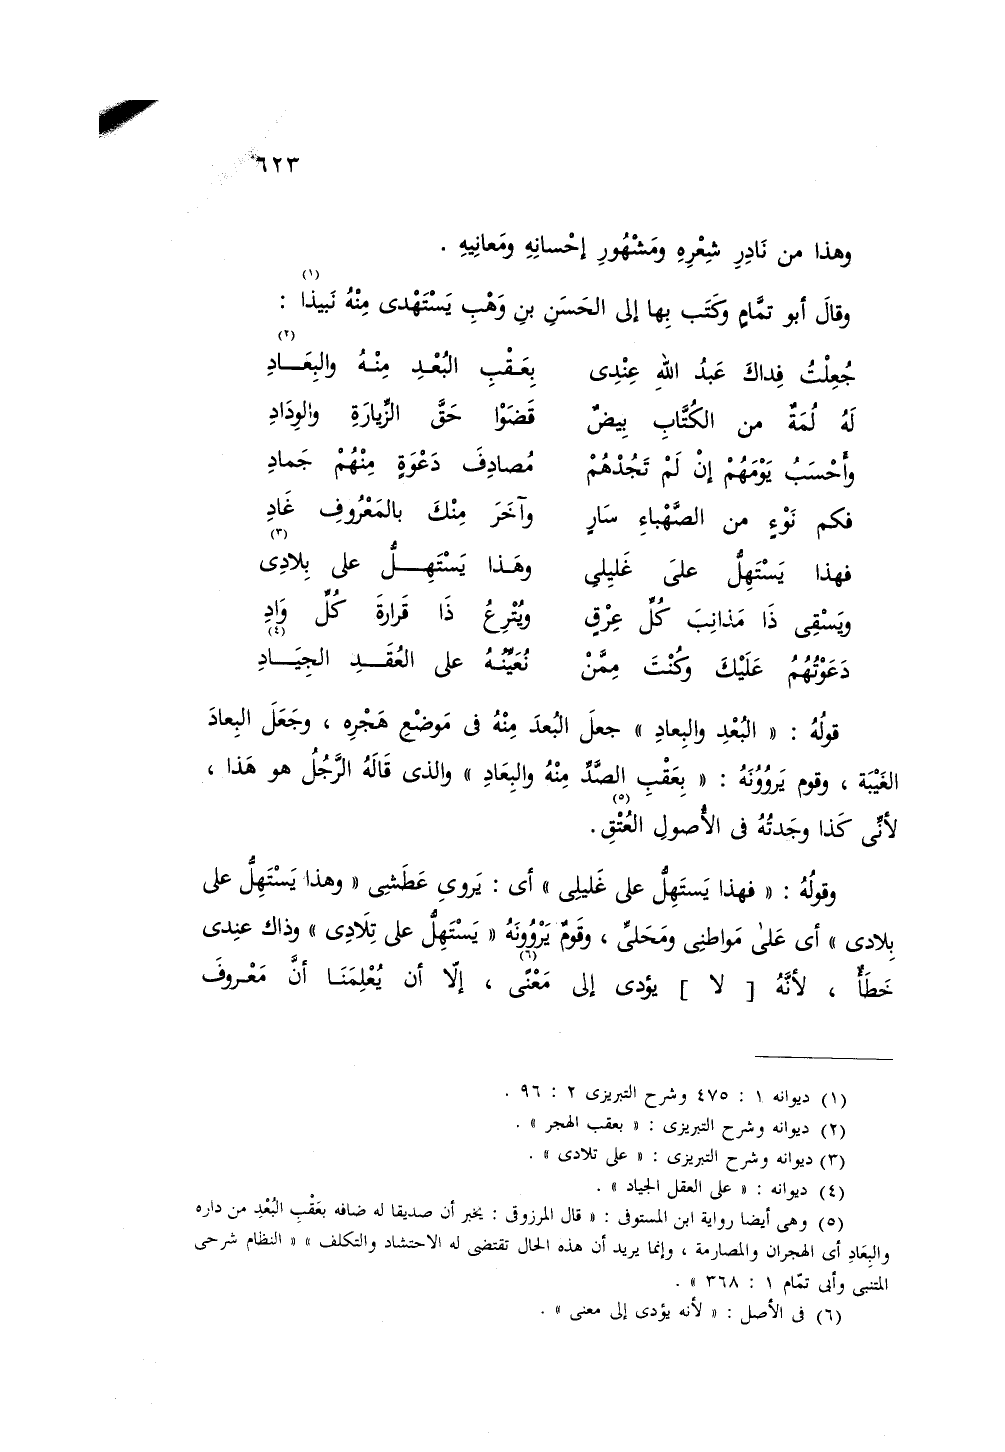 ٦٢٣
وهذا من نَادِرِ شِعْرِهِ ومَشْهُورِ إحْسانِهِ ومَعانِيهِ .
وقالَ أبو تمَّامٍ وكَتَب بِها إلى الحَسَنِ بنِ وَهْبِ يَسْتَهْدى مِنْهُ نَبيذا (١) :
جُعِلْتُ فِداكَ عَبدُ اللهِ عِنْدِى بِعَـقْبِ البُعْـدِ مِنْـهُ والبِعَـــادِ (٢)
لَهُ لُمَةٌ من الكُتَّابِ بِيضٌ قَضَوْا حَقَّ الزِّيارَةِ والوِدَادِ
وأَحْسَبُ يَوْمَهُمْ إنْ لَمْ تَجُدْهُمْ مُصادِفَ دَعْوَةٍ مِنْهُمْ جَمادِ
فكم نَوْءٍ من الصَّهْباءِ سَارٍ وآخَرَ مِنْكَ بالمَعْرُوفِ غَادِ
فهذا يَسْتَهِلُّ علىَ غَلِيلِى وهَـذا يَسْتَهِــــلُّ على بِلادِى (٣)
ويَسْقِى ذَا مَذانِبَ كُلِّ عِرْقٍ ويُتْرِعُ ذَا قَرارَةَ كُلِّ وَادِ
دَعَوْتُهُمُ عَلَيْكَ وكُنْتَ مِمَّنْ نُعَيِّنُـهُ على العُقَـــدِ الجِيَــادِ (٤)
قولُهُ : « البُعْدِ والبِعادِ » جعلَ البُعدَ مِنْهُ فى مَوضْعِ هَجْرِه ، وجَعَلَ البِعادَ
الغَيْبَة ، وقوم يَروُوُنَهُ : « بِعَقْبِ الصَّدِّ مِنْهُ والبِعَادِ » والذى قَالَهُ الرَّجُلُ هو هَذا ،
لأنِّى كَذا وجَدتُهُ فى الأُصولِ العُتْقِ (٥).
وقولُهُ : « فهذا يَستَهِلُّ على غَليلِى » أى : يَروىِ عَطَشىِ « وهذا يَسْتَهِلُّ على
بِلادى » أى عَلىٰ مَواطنِى ومَحَلىِّ ، وقَومٌ يَرْوُونَهُ « يَسْتَهِلُّ على تِلَادِى » وذاك عنِدى
خَطَأٌ ، لأنَّهُ [ لا ] يؤدى إلى مَعْنًى (٦) ، إلّا أن يُعْلِمَنَـا أنَّ مَعْـروفَ
(١) ديوانه ١ : ٤٧٥ وشرح التبريزى ٢ : ٩٦ .
(٢) ديوانه وشرح التبريزى : « بعقب الهجر » .
(٣) ديوانه وشرح التبريزى : « على تلادى » .
(٤) ديوانه : « على العقل الجياد » .
(٥) وهى أيضا رواية ابن المستوفى : « قال المرزوقى : يخبر أن صديقا له ضافه بعَقْبِ البُعْدِ من داره
والبِعَادِ أى الهجران والمصارمة ، وإنما يريد أن هذه الحال تقتضى له الاحتشاد والتكلف » « النظام شرحى
المتنبى وأبى تمّام ١ : ٣٦٨ » .
(٦) فى الأصل : « لأنه يؤدى إلى معنى » .